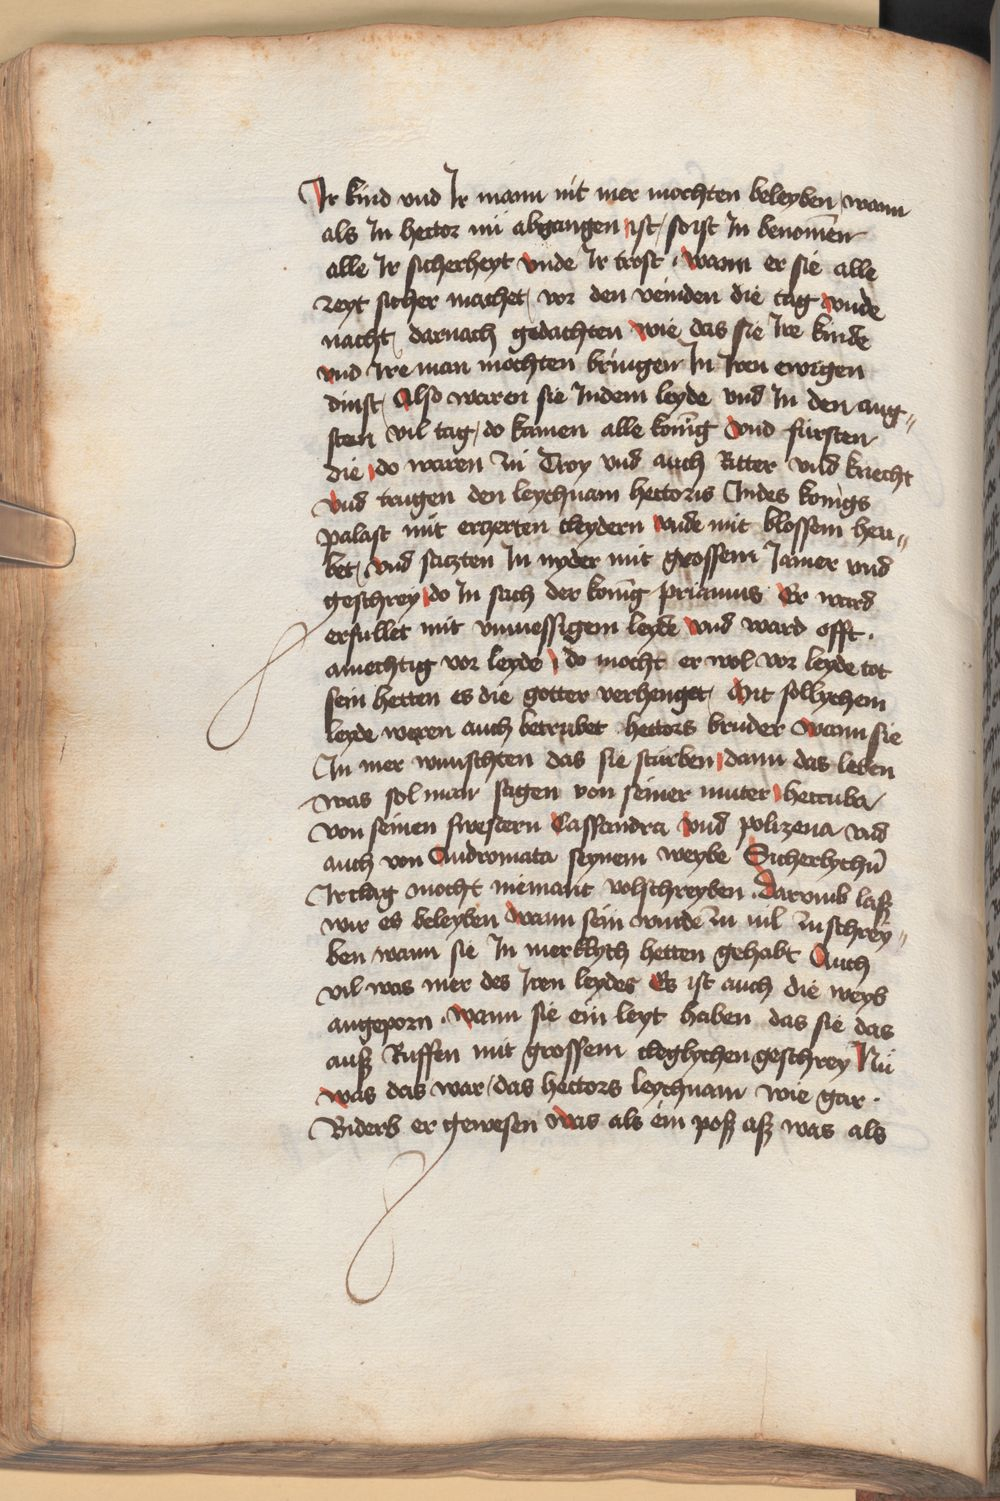 Ir kind vnd Ir mann nit mer mochten beleyben / wann
als In hector nü abgangen ist / so ist In benomen
alle Ir sicherheyt vnde Ir trost · wann er sie alle
zeyt sicher machet / vor den veinden die tag vnde
nacht / darnach gedachten wie das sie Ire kinde
vnd Ire man mochten bringen In Iren ewigen
dinst / Also waren sie Indem leyde vnd In den ang-
sten vil tag / do kamen alle konig vnd fürsten
die do waren zu Troy vnd auch Ritter vnd knecht
vnd trugen den leychnam hectoris Indes konigs
palast mit erzerten cleydern vnde mit blossem heu-
bet / vnd saczten In nyder mit grossem Iamer vnd
geschrey do In sach der konig priamus Er ward
erfullet mit vnmessigem leyde vnd ward offt ·
amechtig vor leyde / do mocht er wol vor leyde tot
sein hetten es die gotter verhenget / Mit sollychem
leyde waren auch betrubet hectors bruder wann sie
In mer wunschten das sie sturben dann das leben
was sol man sagen von seiner muter heccuba
von seinen swestern Cassandra vnd polizena vnd
auch von Andromata seynem weybe Sicherlychn̄
Ir clag mocht niemant volschreyben · Darumb lass
wir es beleyben wann sein wurde zu vil zu schrey-
ben wann sie In merklych hetten gehabt Auch
vil was mer des Iren leydes Es ist auch die weyb
angeporn · wann sie ein leyt haben das sie das
ausz Ruffen mit grossem cleglychen geschrey Nü
was das war / das hectors leychnam wie gar ·
Biderb er gewesen was als ein posz asz was als